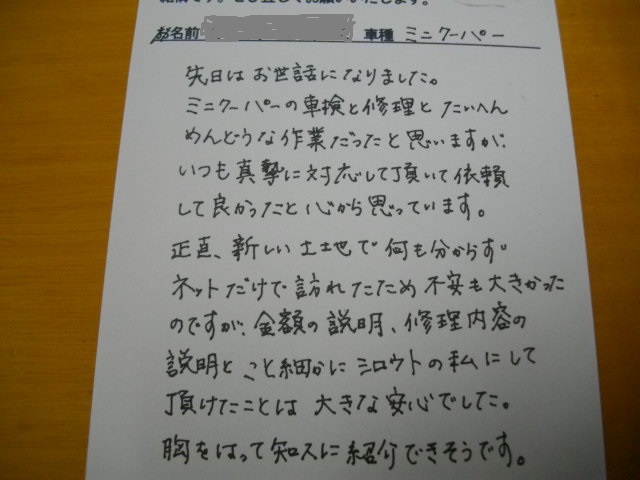 お名前 車種 ミニクーパー
先日はお世話になりました。
ミニクーパーの車検と修理とたいへん
めんどうな作業だったと思いますが、
いつも真摯に対応して頂いて依頼
して良かったと心から思っています。
正直、新しい土地で何も分からず
ネットだけで訪れたため不安も大きかった
のですが、金額の説明、修理内容の
説明とこと細かにシロウトの私にして
頂けたことは大きな安心でした。
胸をはって知人に紹介できそうです。